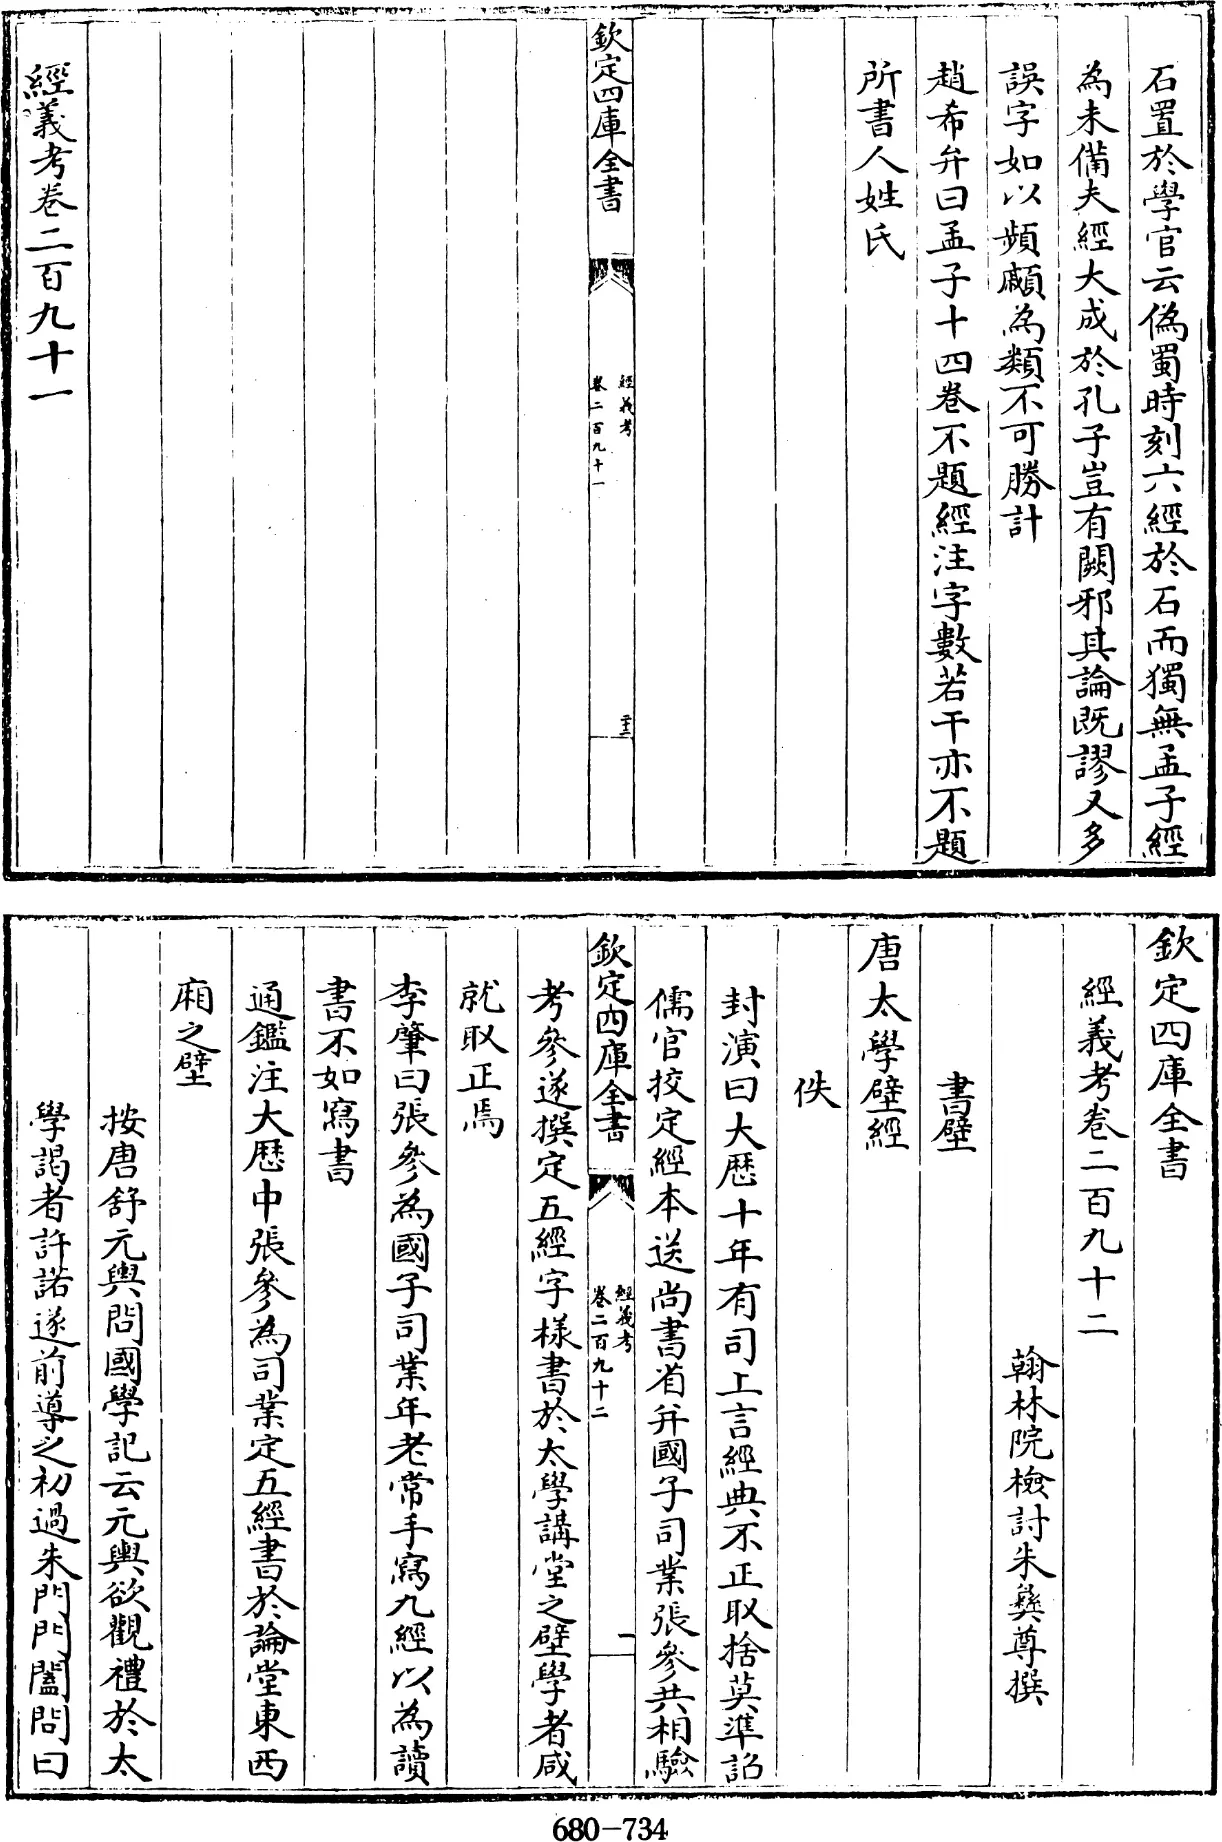 石置於學官云偽蜀時刻六經於石而獨無孟子經
為未備夫經大成於孔子豈有闕邪其論既謬又多
誤字如以頻顣為類不可勝計
趙希弁曰孟子十四卷不題經注字數若干亦不題
所書人姓氏
欽定四庫全書
經義考
卷二百九十一
二十三
經義考卷二百九十一
欽定四庫全書
經義考卷二百九十二
翰林院檢討朱彝尊撰
書壁
唐太學壁經
佚
封演曰大歷十年有司上言經典不正取捨莫準詔
儒官挍定經本送尚書省并國子司業張參共相驗
欽定四庫全書
經義考
卷二百九十二
一
考參遂撰定五經字樣書於太學講堂之壁學者咸
就取正焉
李肇曰張參為國子司業年老常手寫九經以為讀
書不如寫書
通鑑注大歷中張參為司業定五經書於論堂東西
廂之壁
按唐舒元輿問國學記云元輿欲觀禮於太
學謁者許諾遂前導之初過朱門門闔問曰
680-734